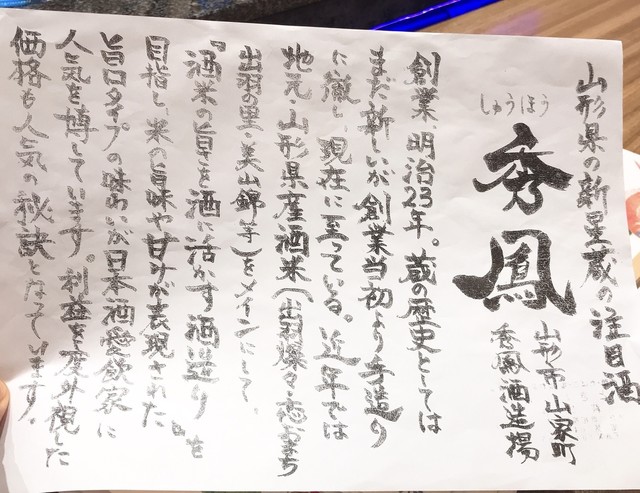 山形県の新星蔵の注目酒
しゅうほう
秀鳳
山形市山家町
秀鳳酒造場
創業、明治23年。蔵の歴史としては
まだ新しいが創業当初より手造り
に徹し、現在に至っている。近年では
地元・山形県産酒米(出羽燦々・恋おまち
出羽の里・美山錦等)をメインにして、
『酒米の旨さを酒に活かす酒造り』を
目指し、米の旨味や甘みが表現された
旨口タイプの味わいが日本酒愛飲家に
人気を博しています。利益を度外視した
価格も人気の秘訣となっています。